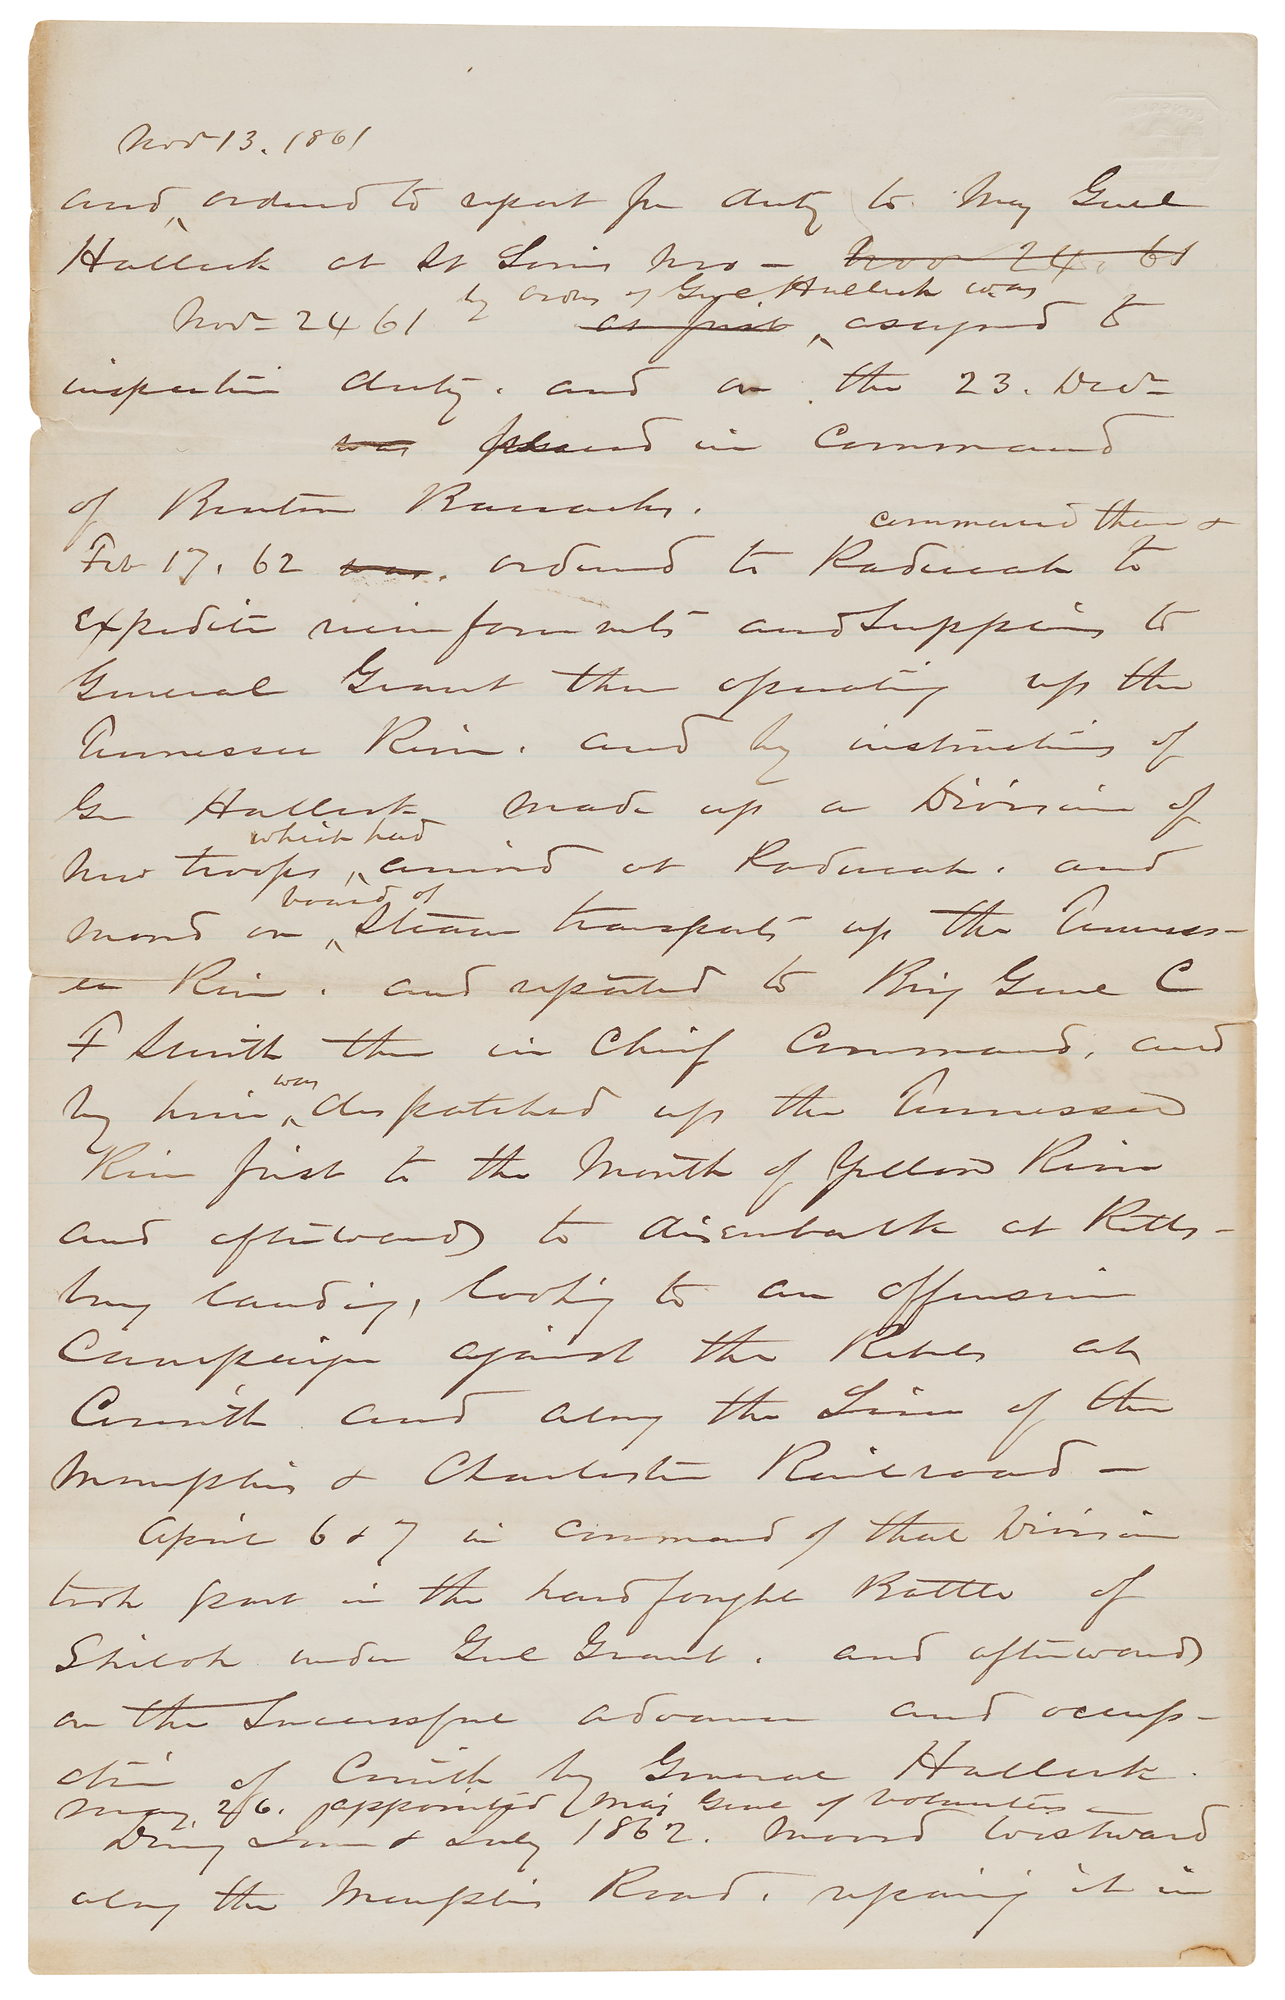 Nov 13. 1861
and ordered to report for duty to Maj Genl
Halleck at St Louis Mo - Nov 24. 61
by order of Gnl Halleck was
Nov- 24 61 at first assigned to
inspection duty. and on the 23. Dec-
was placed in Command
of Benton Barracks.
command there &
Feb 17. 62 was. ordered to Paducah to
expedite reinforcemts and Supplies to
General Grant then operating up the
Tennessee River. and by instructions of
Gn Halleck made up a Division of
which had
new troops, arrived at Paducah. and
board of
moved on Steam transports up the Tenness-
ee River. and reported to Brig Genl C
F Smith then in Chief Command, and
was
by him despatched up the Tennessee
River first to the Mouth of Yellow River
and afterwards to disembark at Pitts-
burg landing, looking to an offensive
Campaign against the Rebels at
Corinth and along the Line of the
Memphis & Charleston Railroad -
April 6 & 7 in command of that Division
took part in the hard fought Battle of
Shiloh under Gnl Grant. and afterwards
on the Successful advance and occup-
ation of Corinth by General Halleck.
May 26. appointed Maj Genl of Volunteers -
During June & July 1862. Moved Westward
along the Memphis Road. repairing it in